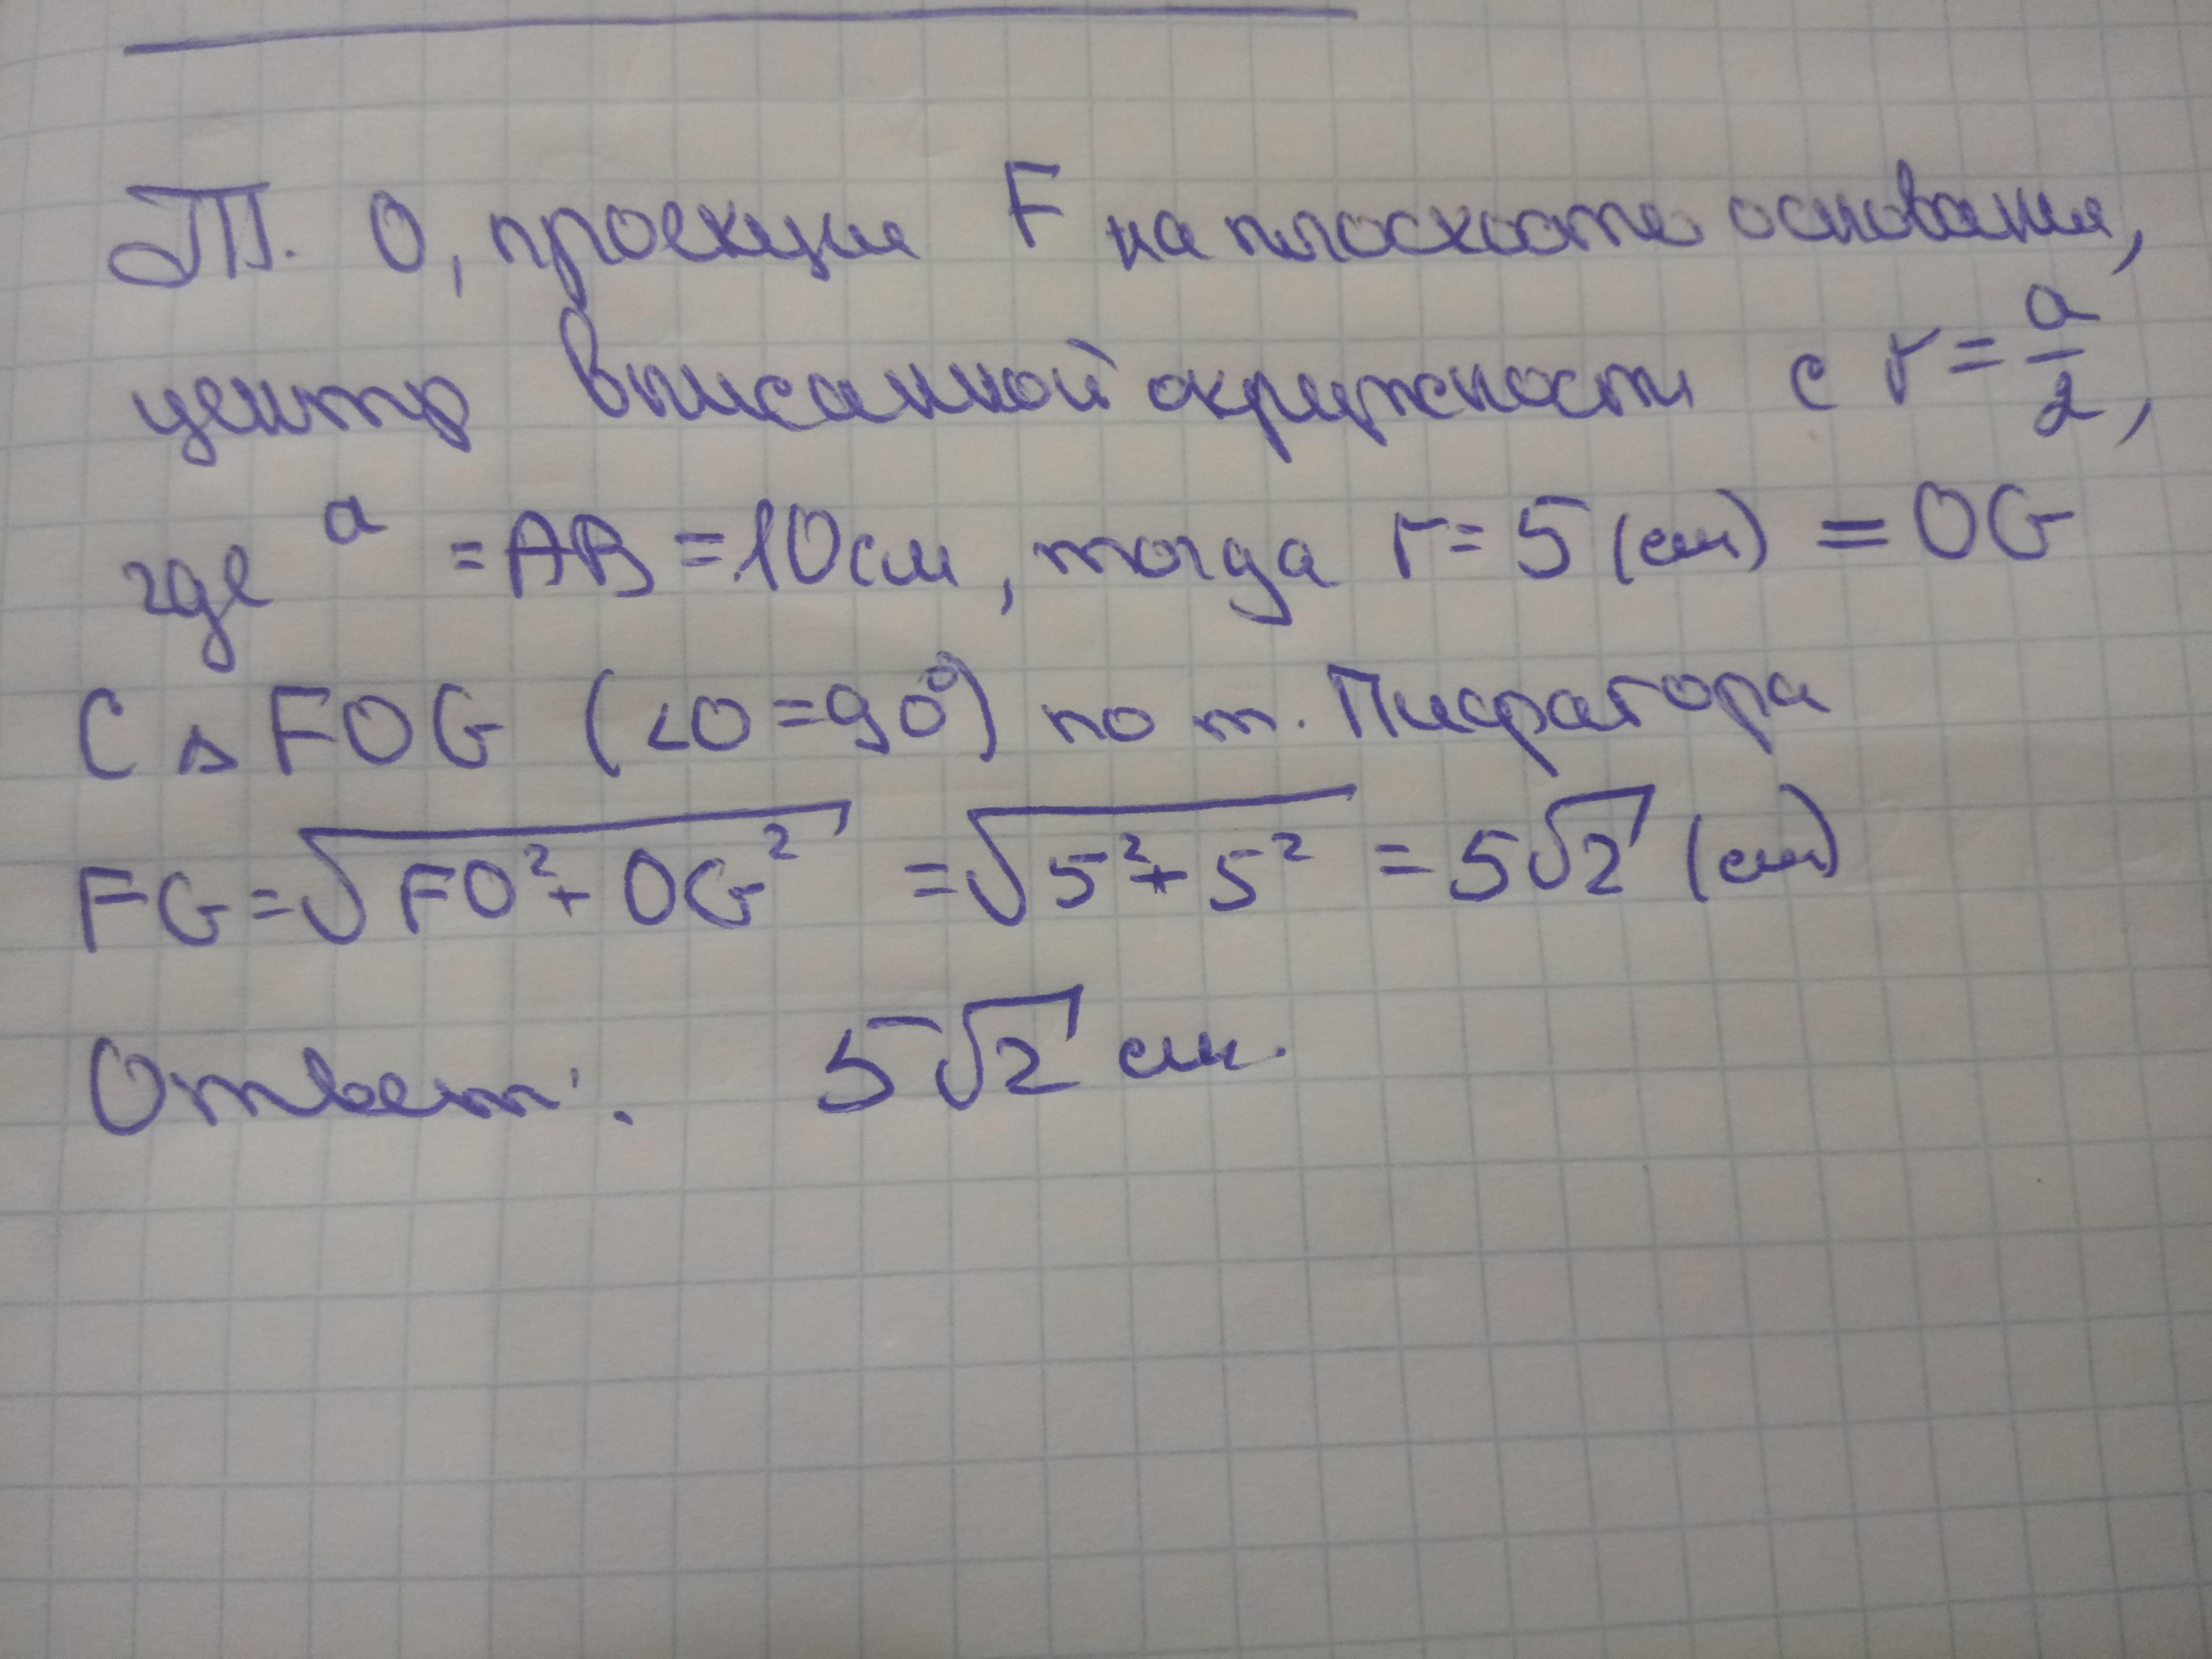 Т. О, проекция F на плоскости основания,
центр вписанной окружности с r = a/2,
где a = AB = 10см, тогда r = 5 (см) = OG
С △ FOG (∠O = 90°) по т. Пифагора
FG = √(FO² + OG²) = √(5² + 5²) = 5√2 (см)
Ответ: 5√2 см.